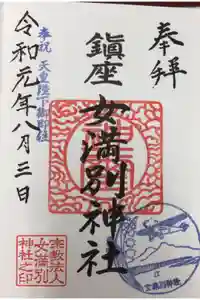 奉拝
鎮座
女満別神社
奉祝 天皇陛下御即位
令和元年八月三日
宗教法人
女満別
神社之印
女満別神社